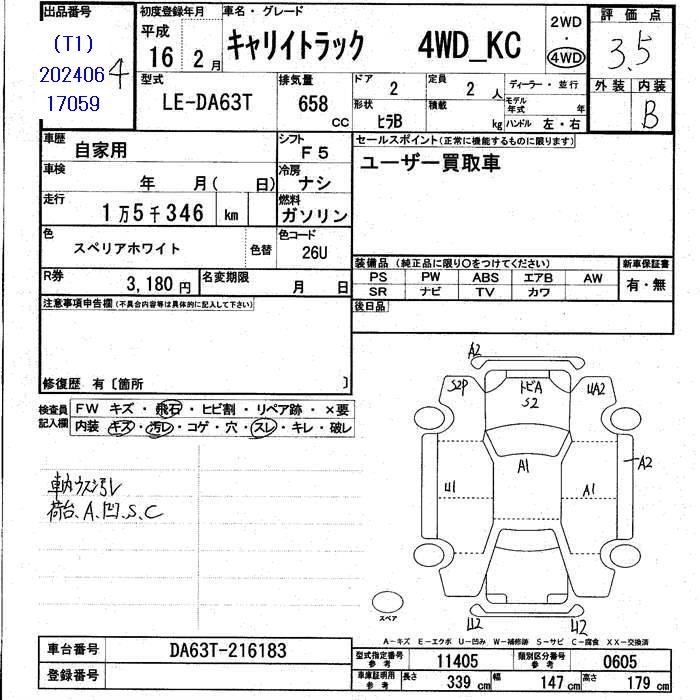 出品番号
(T1)
202406
17059
4
初度登録年月
平成
16 2月
車名・グレード
キャリイトラック 4WD_KC
2WD
・
4WD
評価点
3.5
外装 内装
B
型式
LE-DA63T
排気量
658
CC
ドア
2
定員
2 人
ディーラー・並行
形状
ヒラB
積載
kg
モデル年式 年
ハンドル 左・右
車歴
自家用
シフト
F5
車検
年 月( 日)
冷房
ナシ
走行
1万5千346 km
燃料
ガソリン
色
スペリアホワイト
色替
色コード
26U
R券
3,180 円
名変期限
月 日
セールスポイント(正常に機能するものに限ります)
ユーザー買取車
装備品 (純正品に限り〇をつけてください)
PS PW ABS エアB AW
SR ナビ TV カワ
新車保証書
有・無
後日品
注意事項申告欄(不具合内容等は具体的に記入して下さい)
修復歴 有〔箇所 〕
検査員
記入欄
FW キズ・飛石・ヒビ割・リペア跡・×要
内装 キズ・汚レ・コゲ・穴・スレ・キレ・破レ
車内ウス汚レ
荷台、A、凹、S、C
A2
S2P
トビA
S2
UA2
A1
U1
A1
A2
U2
U2
スペア
A-キズ E-エクボ U-凹み W-補修跡 S-サビ C-腐食 XX-交換済
車台番号
DA63T-216183
登録番号
型式指定番号
参考
11405
類別区分番号
参考
0605
車庫証明用
参考
長さ 339 cm 幅 147 cm 高さ 179 cm